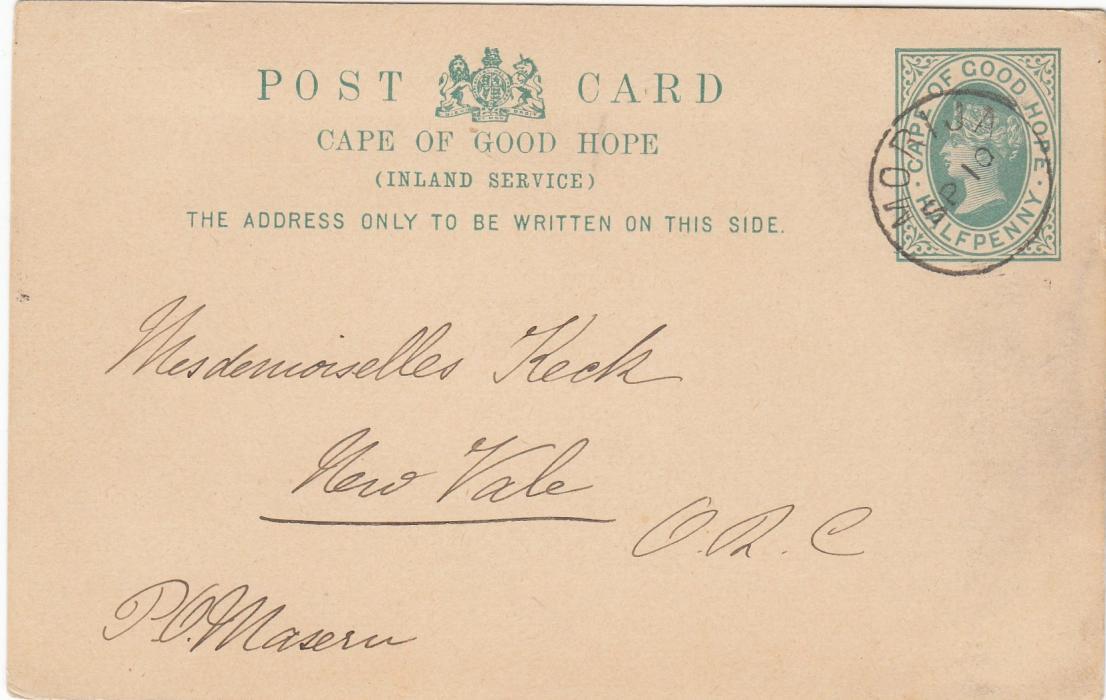 POST CARD
CAPE OF GOOD HOPE
(INLAND SERVICE)
THE ADDRESS ONLY TO BE WRITTEN ON THIS SIDE.
CAPE OF GOOD HOPE
HALFPENNY
MORIJA
AP 10
Mesdemoiselles Keck
New Vale
O.R.C
P.O. Maseru